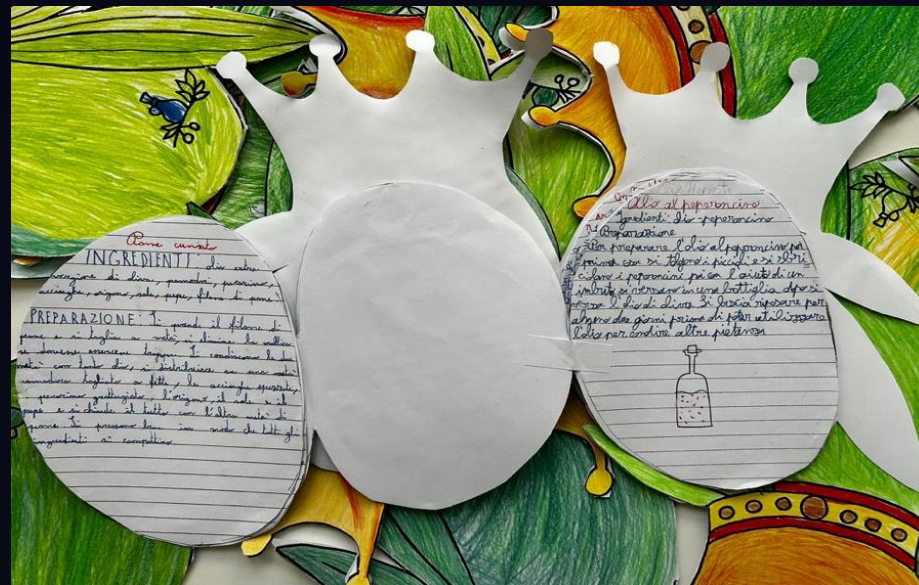 Pane cunzato
INGREDIENTI: olio extra
vergine di oliva, pomodori, pecorino,
acciughe, origano, sale, pepe, filone di pane
PREPARAZIONE: Si prende il filone di
pane e si taglia a metà, si elimina la mollica
se dovesse essercene troppa. Si condiscono le due
metà con tanto olio, si distribuisce su una metà
pomodoro tagliato a fette, le acciughe spezzate,
il pecorino grattugiato, l'origano, il sale e il
pepe e si chiude il tutto con l'altra metà di
pane. Si pressano bene in modo che tutti gli
ingredienti si compattino
Olio al peperoncino
Ingredienti: olio peperoncino
Preparazione
Per preparare l'olio al peperoncino per
prima cosa si tolgono i piccioli e si sbri
ciolano i peperoncini poi con l'aiuto di un
imbuto si versano in una bottiglia dopo si
versa l'olio di oliva. Si lascia riposare per
almeno due giorni prima di poter utilizzare
l'olio per condire altre pietanze